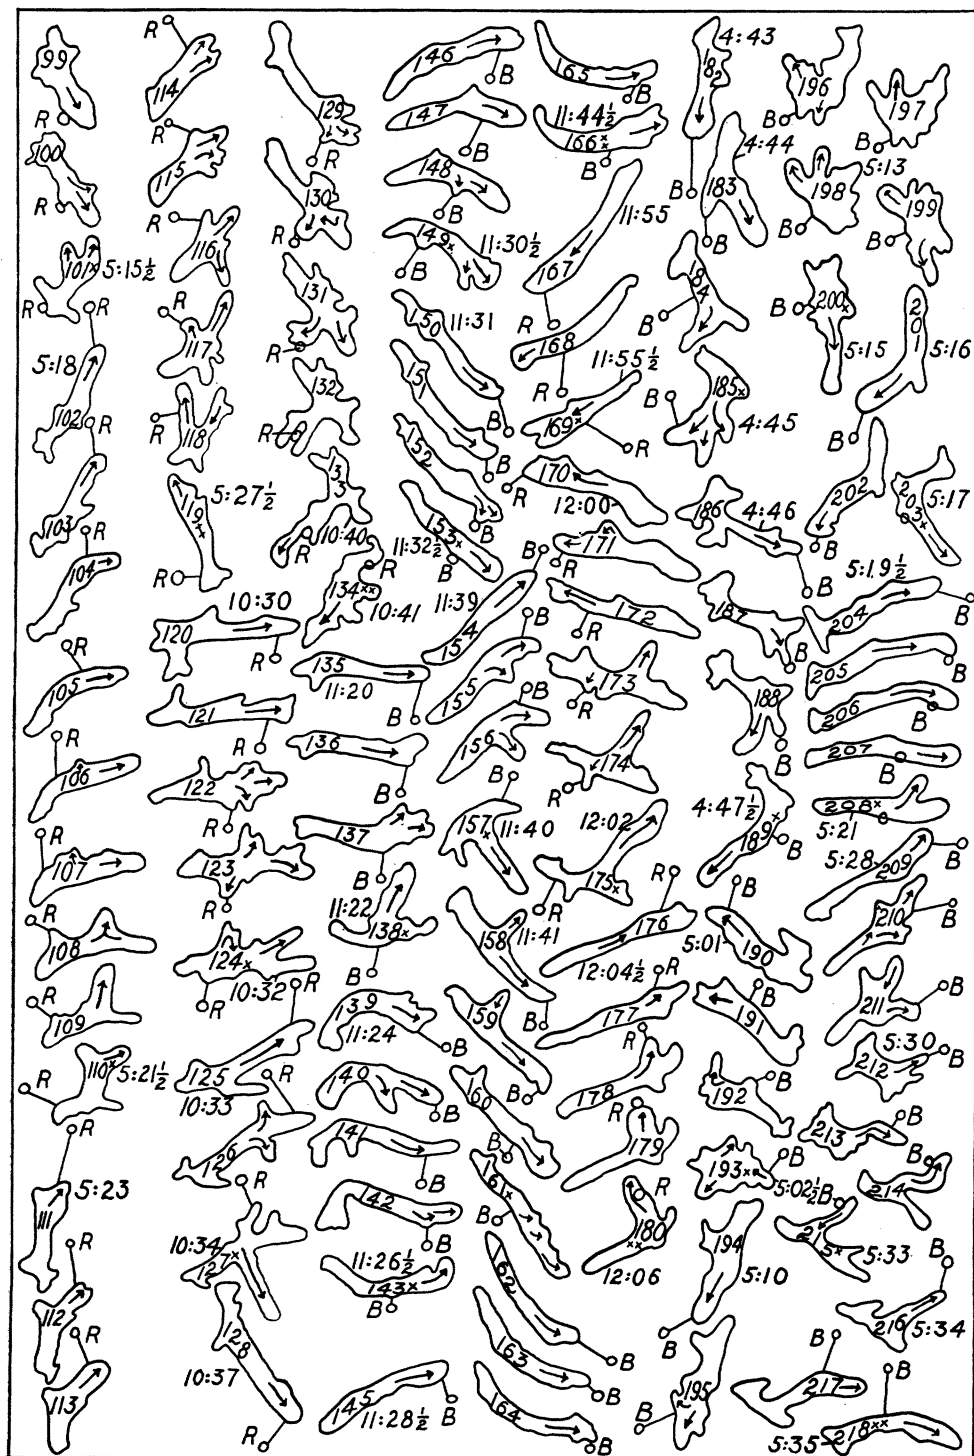 99
R
100
R
101x 5:15½
R
R
5:18
102
R
103
R
104
R
105
R
106
R
107
R
108
R
109
R
110x 5:21½
R
R
5:23
111
R
112
R
113
R
114
R
115
R
116
R
117
R
118
5:27½
119x
R
10:30
120
R
121
R
122
R
123
R
124x
R
10:32
R
125
10:33
R
126
R
10:34
127x
128
10:37
R
129
R
130
R
131
R
132
R
133
R
10:40
R
134xx
10:41
135
11:20
B
136
B
137
B
11:22
138x
B
139
11:24
B
140
B
141
B
142
B
11:26½
143x
B
145
11:28½
B
146
B
147
B
148
B
149x
11:30½
B
150
11:31
B
151
B
152
B
153x
11:32½
B
B
11:39
154
B
155
B
156
B
157x
11:40
158
11:41
B
159
B
160
B
161x
B
162
B
163
B
164
B
165
B
11:44½
166xx
B
11:55
167
R
168
R
11:55½
169x
R
170
R
12:00
171
R
172
R
173
R
174
R
12:02
175x
R
R
176
12:04½
R
177
R
178
R
179
R
180xx
12:06
4:43
182
B
4:44
183
B
184
B
185x
B
4:45
186
4:46
B
187
B
188
B
4:47½
189x
B
B
5:01
190
B
191
B
192
B
193xx
5:02½
194
5:10
B
195
B
196
B
197
B
5:13
198
B
199
B
200x
B
5:15
201
5:16
B
202
B
203x
5:17
5:19½
204
B
205
B
206
B
207
B
208x
5:21
B
5:28
209
B
210
B
211
B
5:30
212
B
213
B
214
B
215x
5:33
B
216
5:34
B
217
B
5:35
218xx